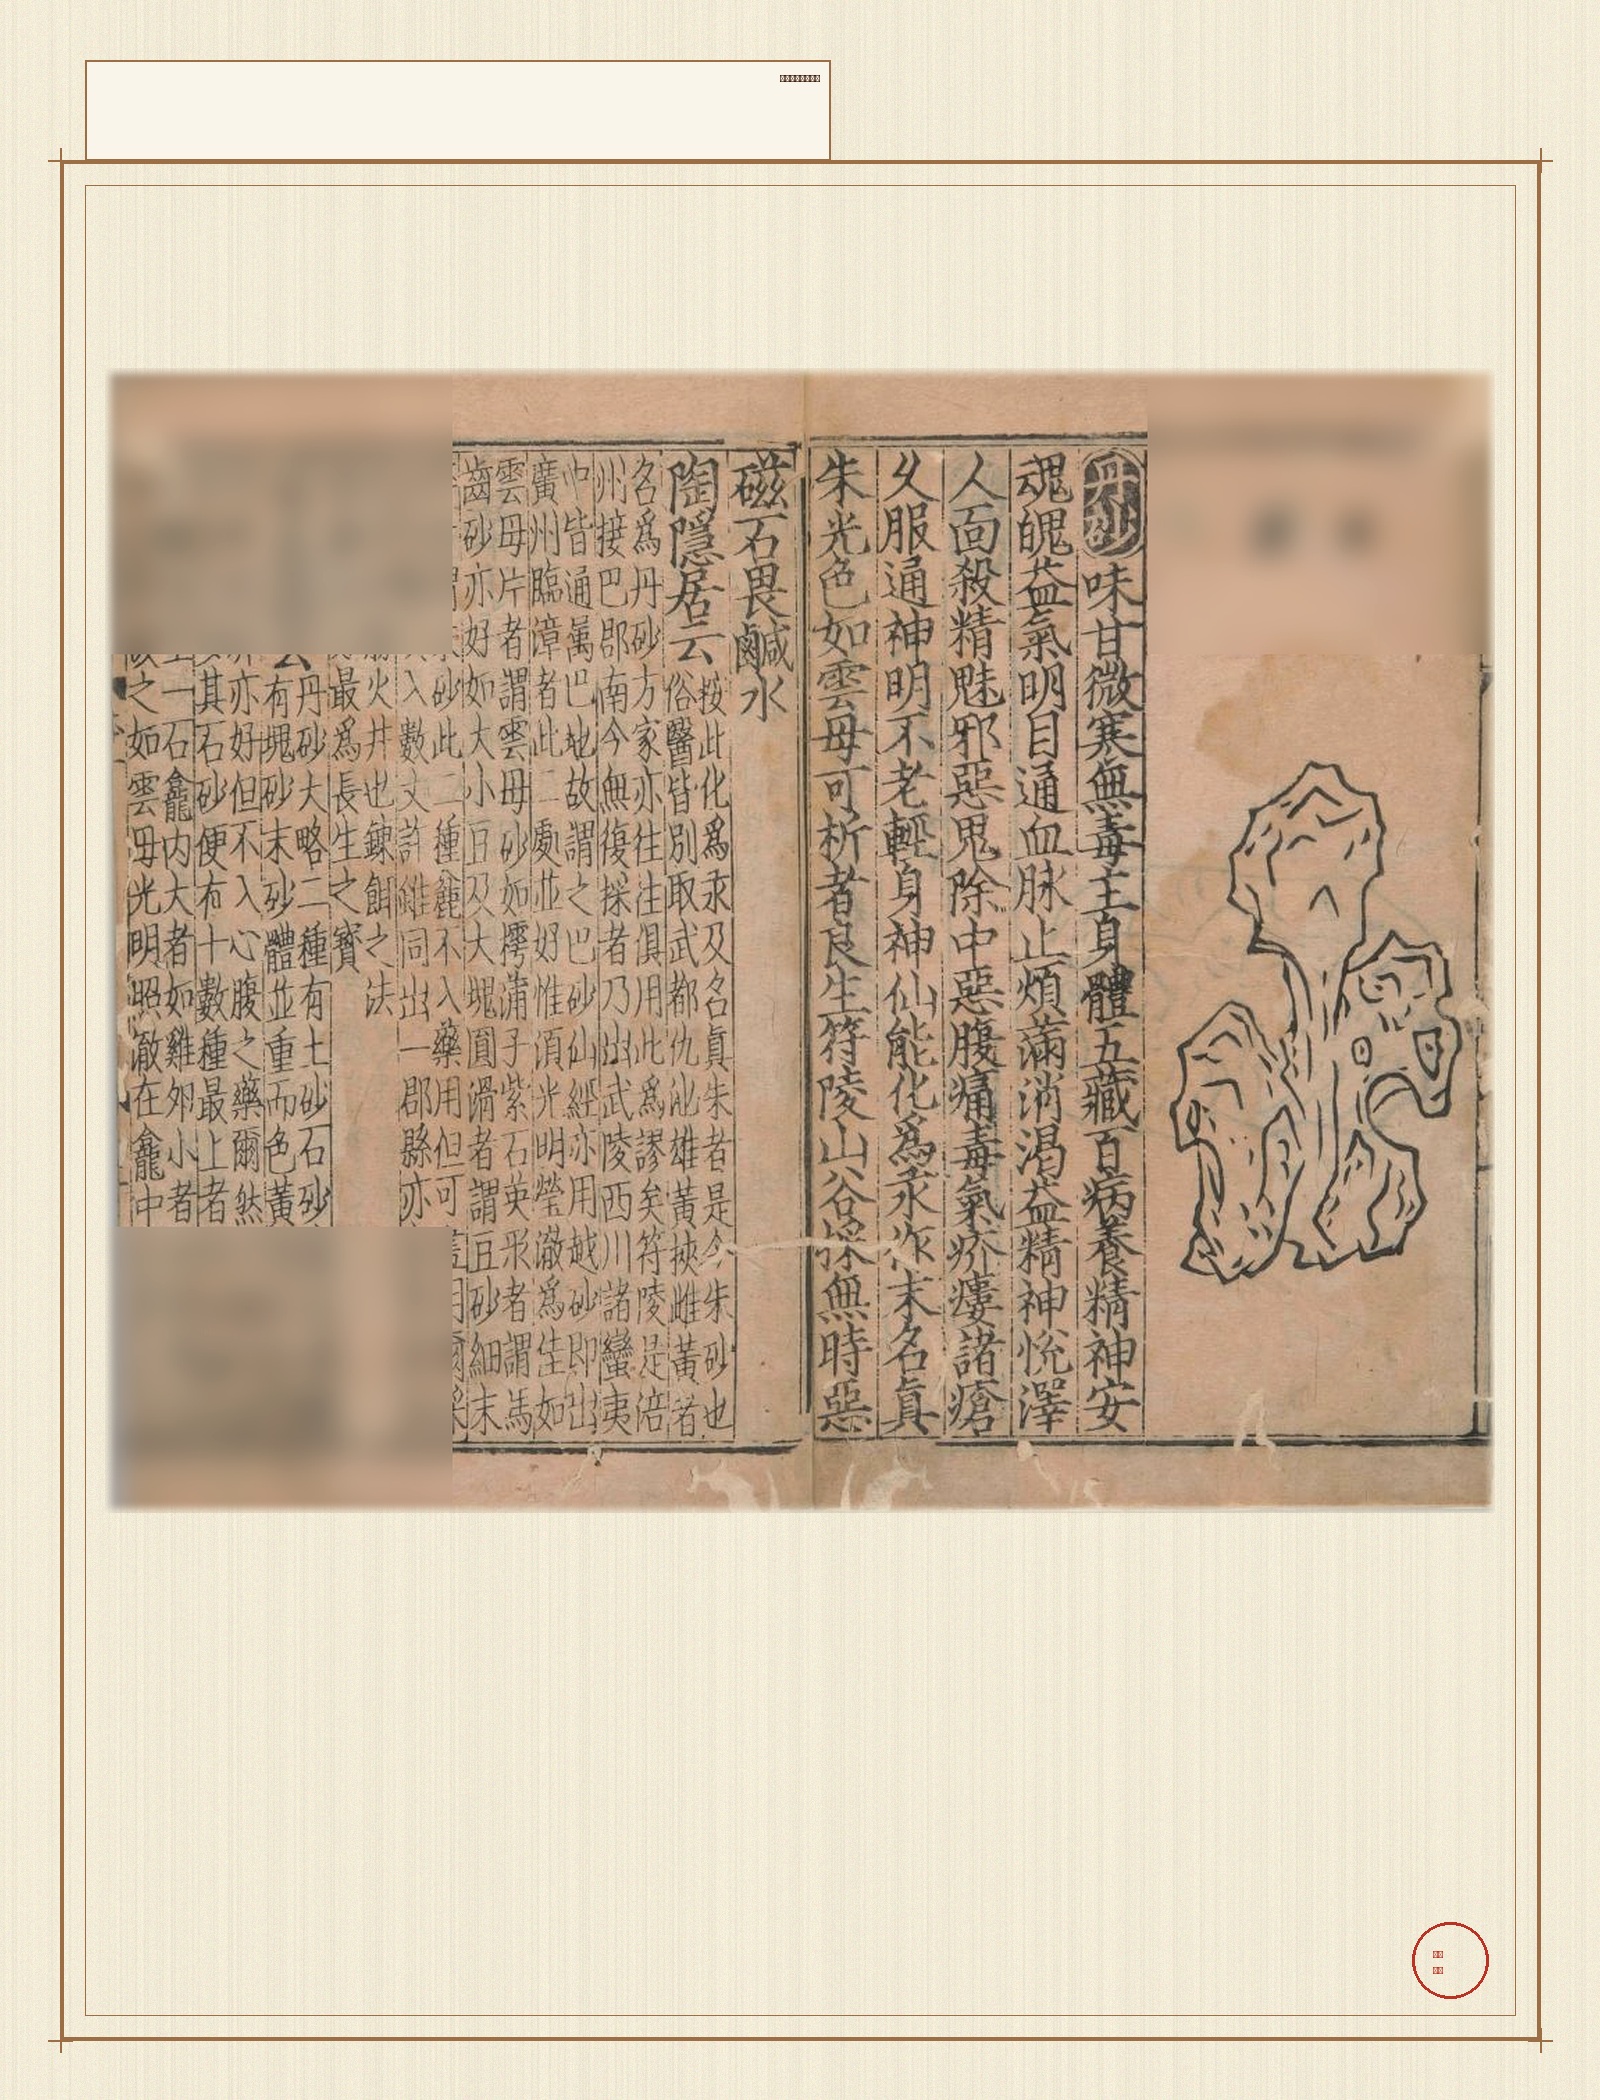 丹砂味甘微寒無毒主身體五藏百病養精神安
魂魄益氣明目通血脉止煩滿消渴益精神悅澤
人面殺精魅邪惡鬼除中惡腹痛毒氣疥瘻諸瘡
久服通神明不老輕身神仙能化爲汞作末名眞
朱光色如雲母可析者良生符陵山谷採無時惡
磁石畏鹹水
陶隱居云按此化爲汞及名眞朱者是今朱砂也
俗醫皆別取武都仇池雄黃挾雌黃者
名爲丹砂方家亦往往俱用此爲謬矣符陵是涪
州接巴郡南今無復採者乃出武陵西川諸蠻夷
中皆通屬巴地故謂之巴砂仙經亦用越砂即出
廣州臨漳者此二處並好惟須光明瑩澈爲佳如
雲母片者謂雲母砂如樗蒲子紫石英形者謂馬
齒砂亦好如大小豆及大塊圓滑者謂豆砂細末
砂此二種麄不入藥用但可
入數丈許雖同出一郡縣亦
火井也鍊餌之法
最爲長生之寶
丹砂大略二種有土砂石砂
有塊砂末砂體並重而色黃
亦好但不入心腹之藥爾然
其石砂便有十數種最上者
一石龕内大者如雞卵小者
之如雲母光明照澈在龕中